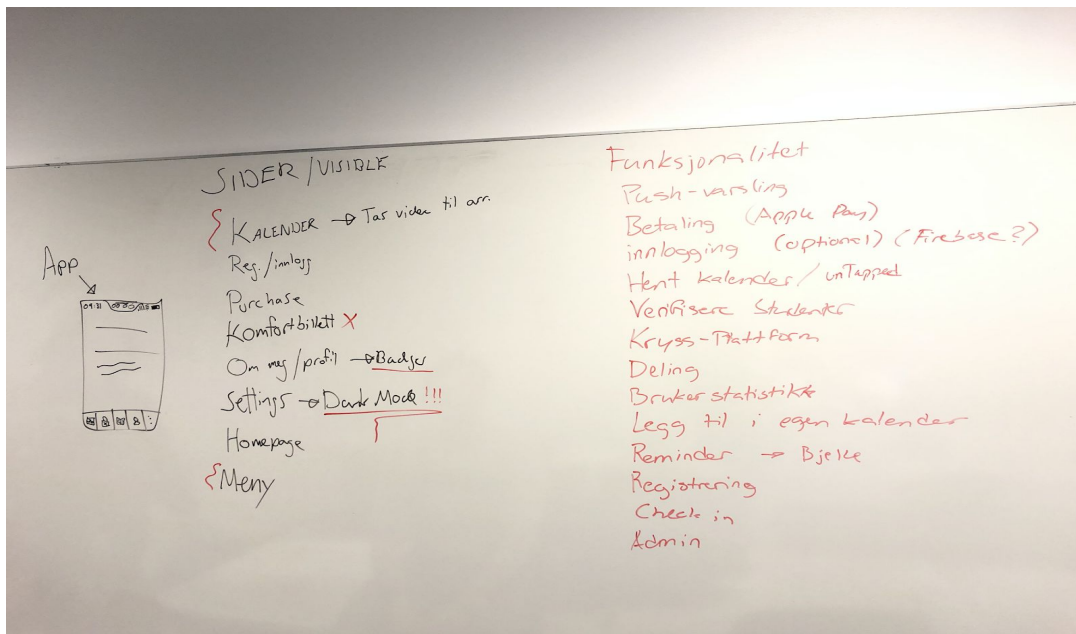 SIDER/VISIBLE
KALENDER → Tar videre til arr.
Reg./innlogg
Purchase
Komfortbillett X
Om meg/profil → Badges
Settings → Dark Mode !!!
Homepage
Meny
App
09:31
Funksjonalitet
Push-varsling
Betaling (Apple Pay)
innlogging (optional) (Firebase?)
Hent kalender/unTapped
Verifisere Studenter
Kryss-Plattform
Deling
Brukerstatistikk
Legg til i egen kalender
Reminder → Bjelle
Registrering
Check in
Admin